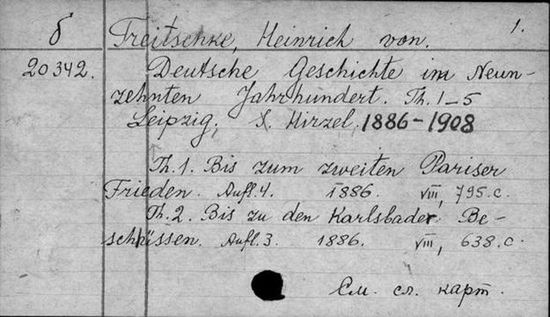 б Treitschke, Heinrich von. 1.
20342. Deutsche Geschichte im Neun-
zehnten Jahrhundert. Th. 1-5
Leipzig, S. Hirzel, 1886-1908
Th. 1. Bis zum zweiten Pariser
Frieden. Aufl. 4. 1886 VIII, 795 c.
Th. 2. Bis zu den Karlsbader Be-
schlüssen. Aufl. 3. 1886. VIII, 638 c.
См. сл. карт.